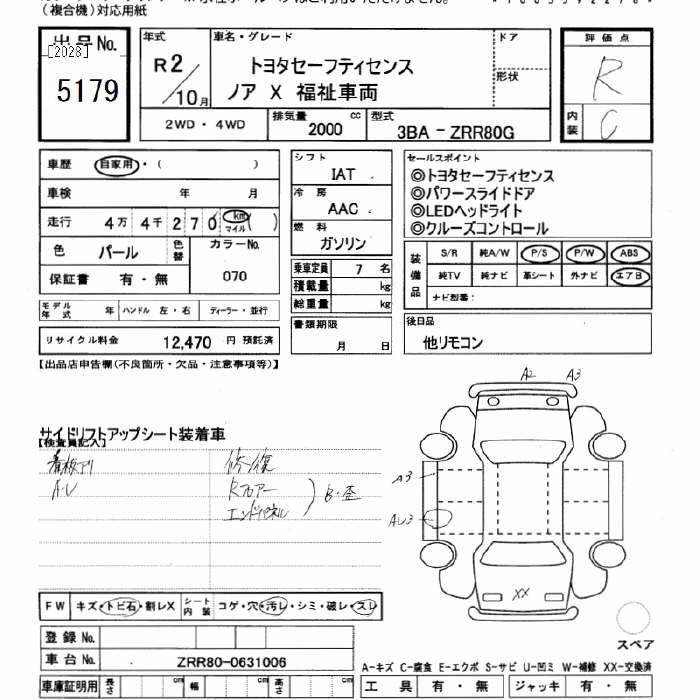 （複合機）対応用紙
出品No.
[2028]
5179
年式
R2/10月
車名・グレード
トヨタセーフティセンス
ノア X 福祉車両
ドア
形状
2WD・4WD
排気量 2000 cc
型式 3BA-ZRR80G
評価点
R
内装 C
車歴 自家用・（ ）
車検 年 月
走行 4万 4千 270 km マイル ( )
色 パール 色替 カラーNo.
保証書 有・無 070
モデル年式 年 ハンドル 左・右 ディーラー・並行
リサイクル料金 12,470 円 預託済
シフト
IAT
冷房
AAC
燃料
ガソリン
乗車定員 7 名
積載量 kg
総重量 kg
書類期限
月 日
セールスポイント
◎トヨタセーフティセンス
◎パワースライドドア
◎LEDヘッドライト
◎クルーズコントロール
装備品
S/R 純A/W P/S P/W ABS
純TV 純ナビ 革シート 外ナビ エアB
ナビ型番：
後日品
他リモコン
【出品店申告欄（不良箇所・欠品・注意事項等）】
サイドリフトアップシート装着車
【検査員記入】
看板下リ
A・U
修復
Rフロアー
エンドパネル
B・歪
A2 A3
A3
AU3
XX
FW キズ・トビ石・割レX シート内装 コゲ・穴・汚レ・シミ・破レ・スレ
登録No.
車台No. ZRR80-0631006
車庫証明用 長さ cm 幅 cm 高さ cm
スペア
A-キズ C-腐食 E-エクボ S-サビ U-凹ミ W-補修 XX-交換済
工具 有・無 ジャッキ 有・無